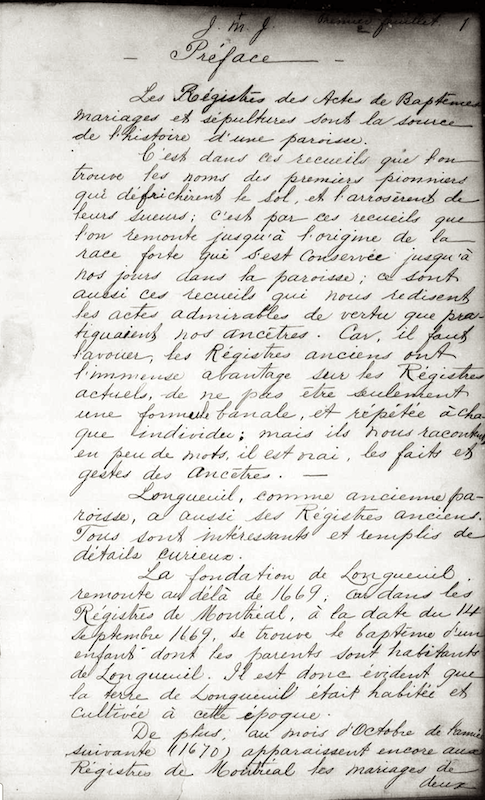 J. M. J. Premier feuillet. 1
— Préface —
Les Régistres des Actes de Baptêmes
mariages et sépultures sont la source
de l'histoire d'une paroisse.
C'est dans ces recueils que l'on
trouve les noms des premiers pionniers
qui défrichèrent le sol, et l'arrosèrent de
leurs sueurs; c'est par ces recueils que
l'on remonte jusqu'à l'origine de la
race forte qui s'est conservée jusqu'à
nos jours dans la paroisse; ce sont
aussi ces recueils qui nous redisent
les actes admirables de vertu que pra-
tiquaient nos ancêtres. Car, il faut
l'avouer, les Régistres anciens ont
l'immense avantage sur les Régistres
actuels, de ne pas être seulement
une formule banale, et répétée à cha
que individu; mais ils nous racontent
en peu de mots, il est vrai, les faits et
gestes des Ancêtres. —
Longueuil, comme ancienne pa-
roisse, a aussi ses Régistres anciens.
Tous sont intéressants et remplis de
détails curieux.
La fondation de Longueuil
remonte au délà de 1669; car dans les
Régistres de Montréal, à la date du 14
Septembre 1669, se trouve le baptême d'un
enfant dont les parents sont habitants
de Longueuil. Il est donc évident que
la terre de Longueuil était habitée et
cultivée à cette époque.
De plus, au mois d'Octobre de l'année
suivante (1670) apparaissent encore aux
Régistres de Montréal les mariages de
deux